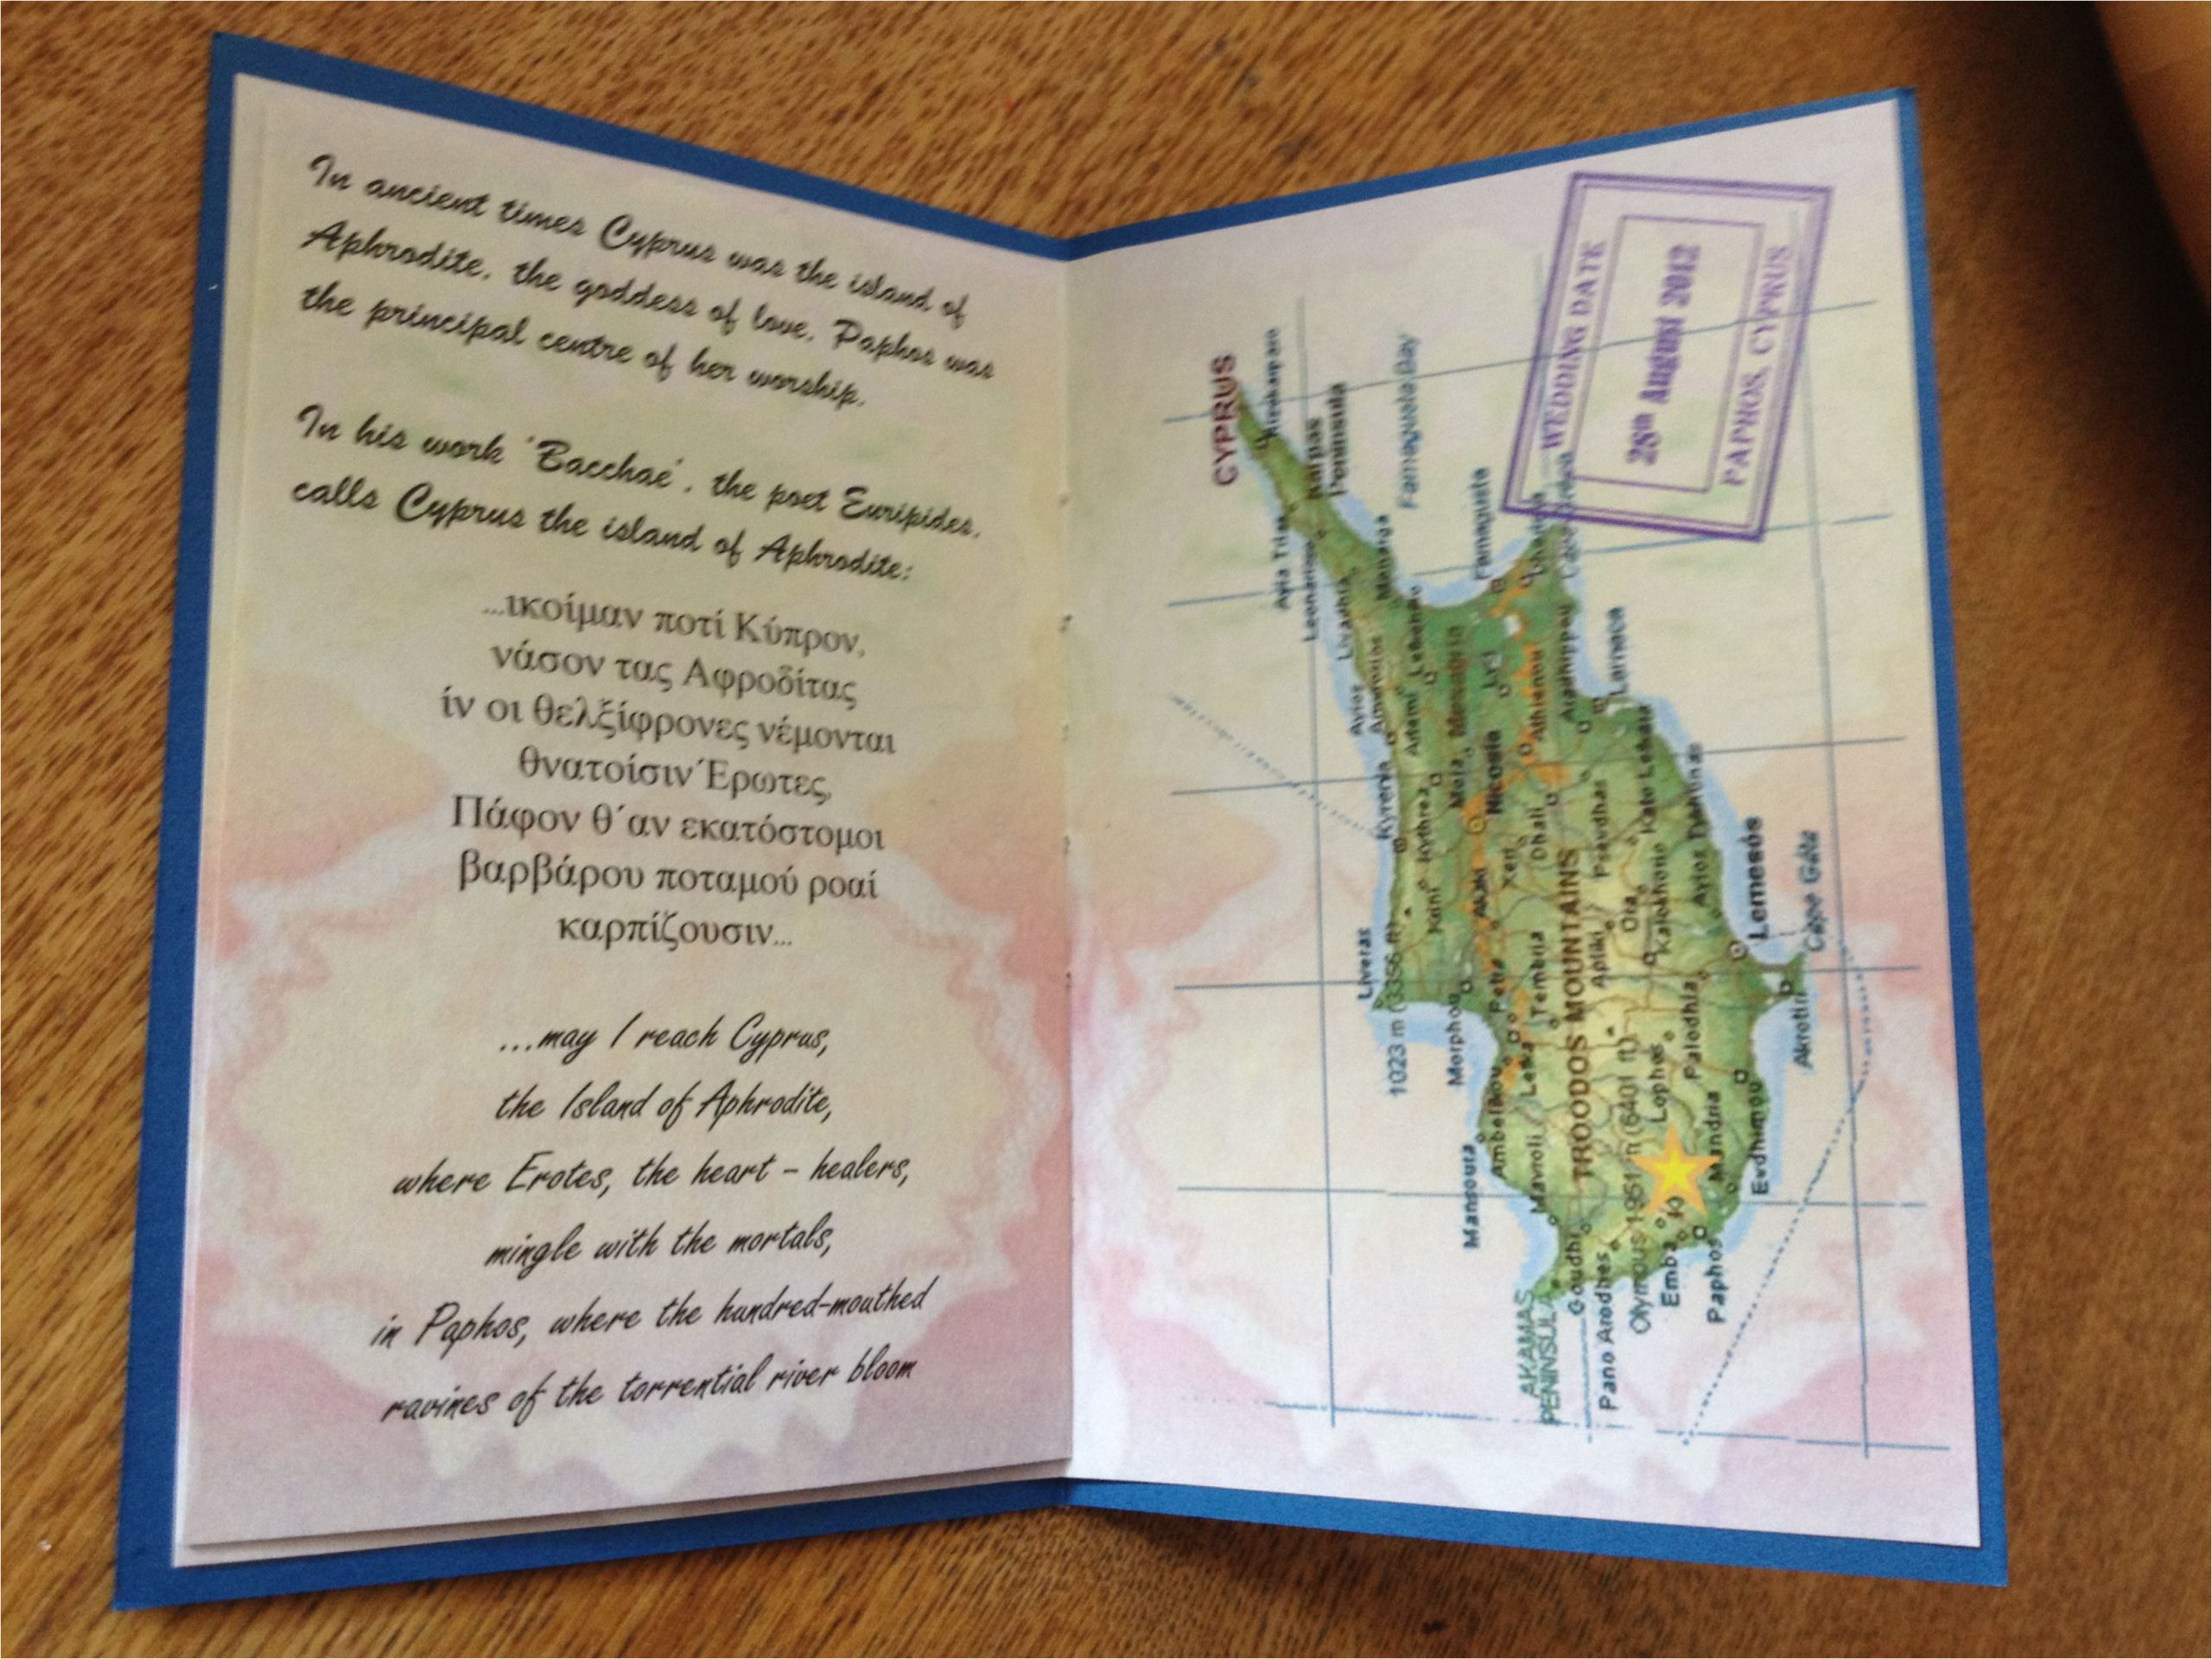 In ancient times Cyprus was the island of
Aphrodite, the goddess of love. Paphos was
the principal centre of her worship.
In his work 'Bacchae', the poet Euripides,
calls Cyprus the island of Aphrodite:
...ικοίμαν ποτί Κύπρον,
νάσον τας Αφροδίτας
ίν οι θελξίφρονες νέμονται
θνατοίσιν Έρωτες,
Πάφον θ΄αν εκατόστομοι
βαρβάρου ποταμού ροαί
καρπίζουσιν...
...may I reach Cyprus,
the Island of Aphrodite,
where Erotes, the heart - healers,
mingle with the mortals,
in Paphos, where the hundred-mouthed
ravines of the torrential river bloom
WEDDING DATE
28th August 2012
PAPHOS, CYPRUS
CYPRUS
Rizokarpaso
Karpas
Peninsula
Famagusta Bay
Ayia Trias
Leonarisso
Livadhia
Famagusta
Lefkoniko
Larnaca
Ayios
Amvrosios
Kyrenia
Kythrea
Nicosia
Athienou
Aradhippou
Dhali
Pravdhas
Kato Lefkara
Ora
Kalokhorio
Lemesós
Cape Gáta
Akrotiri
Liveras
1023 m (3356 ft)
Morphou
Petra
Tembria
Apliki
TROODOS MOUNTAINS
Lefka
Ambelikou
Mansoura
Mavroli
Olympus 1951 m (6401 ft)
Lophos
Palodhia
Mandria
Evdhimou
AKAMAS
PENINSULA
Goudhi
Pano Arodhes
Emba
Paphos